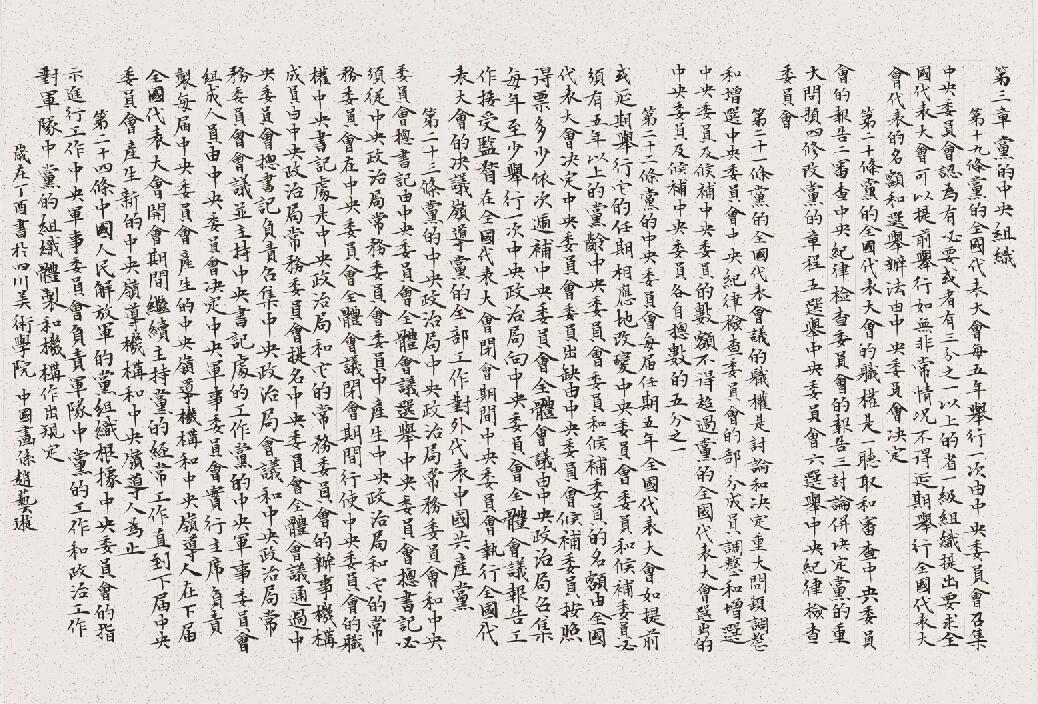 第三章黨的中央組織
第十九條黨的全國代表大會每五年舉行一次由中央委員會召集
中央委員會認為有必要或者有三分之一以上的省一級組織提出要求全
國代表大會可以提前舉行如無非常情況不得延期舉行全國代表大
會代表的名額和選舉辦法由中央委員會決定
第二十條黨的全國代表大會的職權是一聽取和審查中央委員
會的報告二審查中央紀律檢查委員會的報告三討論併決定黨的重
大問題四修改黨的章程五選舉中央委員會六選舉中央紀律檢查
委員會
第二十一條黨的全國代表會議的職權是討論和決定重大問題調整
和增選中央委員會中央紀律檢查委員會的部分成員調整和增選
中央委員及候補中央委員的數額不得超過黨的全國代表大會選出的
中央委員及候補中央委員各自總數的五分之一
第二十二條黨的中央委員會每屆任期五年全國代表大會如提前
或延期舉行它的任期相應地改變中央委員會委員和候補委員必
須有五年以上的黨齡中央委員會委員和候補委員的名額由全國
代表大會決定中央委員會委員出缺由中央委員會候補委員按照
得票多少依次遞補中央委員會全體會議由中央政治局召集
每年至少舉行一次中央政治局向中央委員會全體會議報告工
作接受監督在全國代表大會閉會期間中央委員會執行全國代
表大會的決議嶺導黨的全部工作對外代表中國共產黨
第二十三條黨的中央政治局中央政治局常務委員會和中央
委員會總書記由中央委員會全體會議選舉中央委員會總書記必
須從中央政治局常務委員會委員中產生中央政治局和它的常
務委員會在中央委員會全體會議閉會期間行使中央委員會的職
權中央書記處是中央政治局和它的常務委員會的辦事機構
成員由中央政治局常務委員會提名中央委員會全體會議通過中
央委員會總書記負責召集中央政治局會議和中央政治局常
務委員會會議並主持中央書記處的工作黨的中央軍事委員會
組成人員由中央委員會決定中央軍事委員會實行主席負責
製每屆中央委員會產生的中央嶺導機構和中央嶺導人在下屆
全國代表大會開會期間繼續主持黨的經常工作直到下屆中央
委員會產生新的中央嶺導機構和中央嶺導人為止
第二十四條中國人民解放軍的黨組織根據中央委員會的指
示進行工作中央軍事委員會負責軍隊中黨的工作和政治工作
對軍隊中黨的組織體製和機構作出規定
歲在丁酉書於四川美術學院 中國畫係趙藝璇